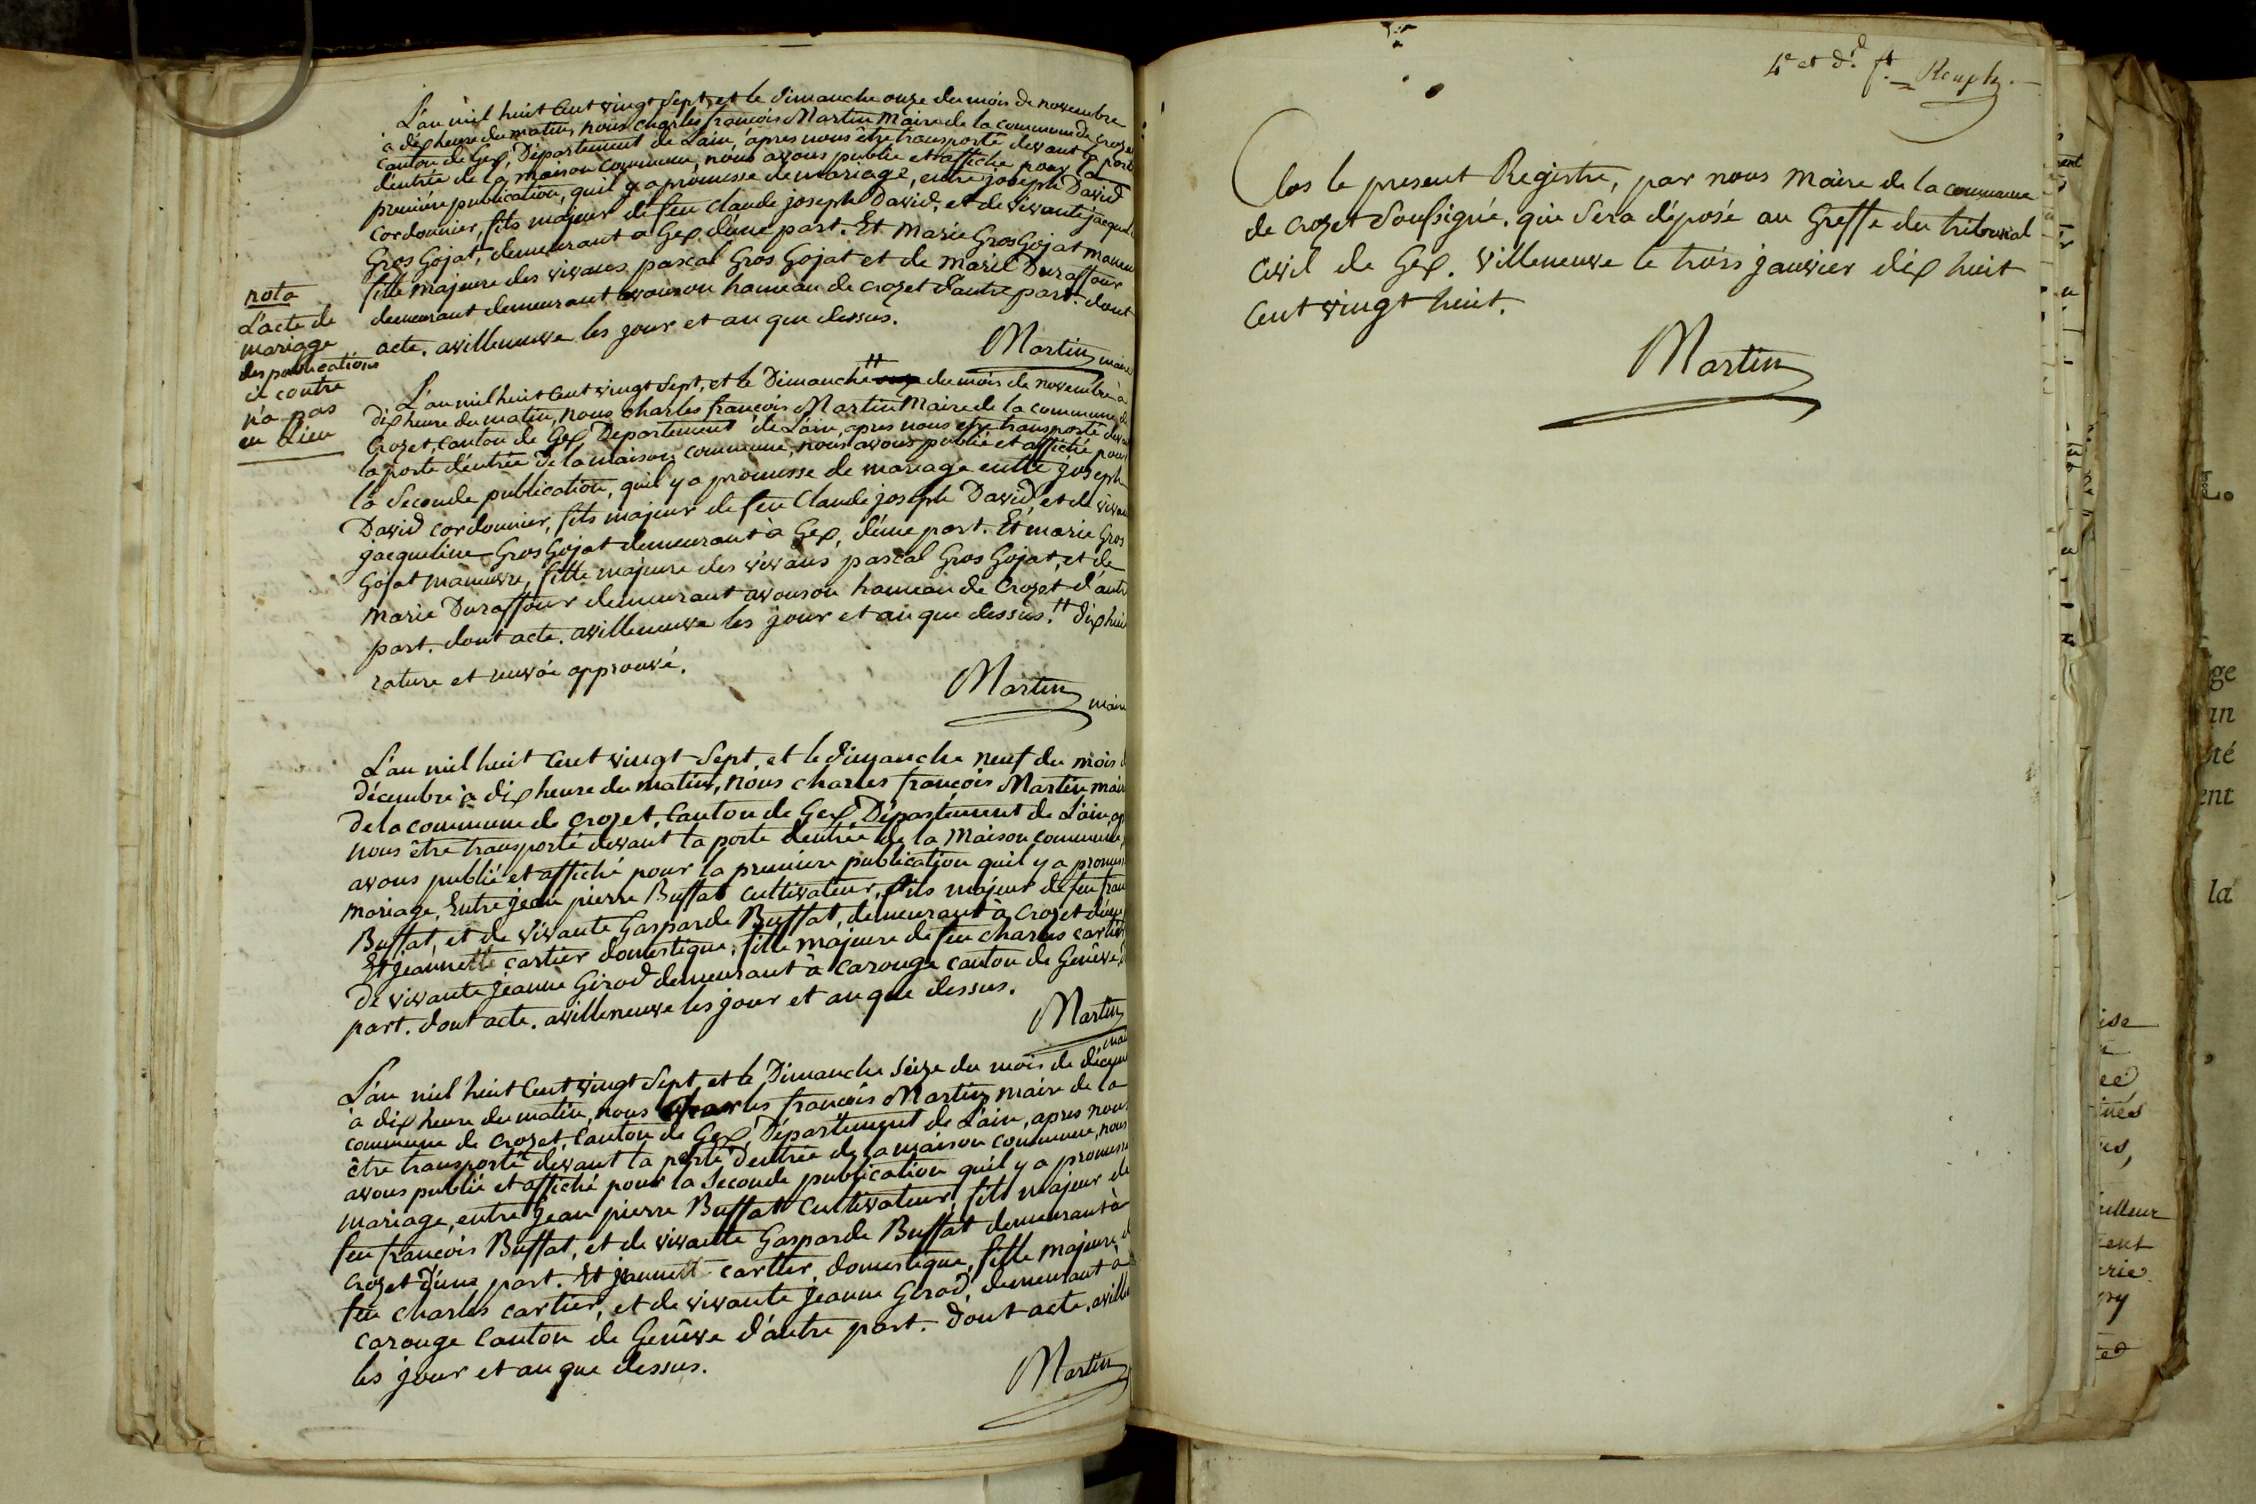 L'an mil huit Cent vingt Sept, et le dimanche onze du mois de novembre
à dix heure du matin, nous charles françois Martin Maire de la commune de Crozet
canton de Gex, Département de L'ain, après nous être transporté devant la porte
d'entrée de la maison commune, nous avons publié et affiché pour la
première publication, quil y a promesse de mariage, entre joseph David
cordonnier, fils majeur de feu Claude joseph David, et de vivante jacqueline
Gros Gojat, demeurant à Gex d'une part. Et Marie Gros Gojat
fille majeure des vivants pascal Gros Gojat et de Marie Duraffour
demeurant demeurant avouson hameau de crozet d'autre part. dont
acte. avilleneuve les jour et an que dessus.
Martin maire
nota
L'acte de
mariage
des publications
ci contre
n'a pas
eu Lieu
L'an mil huit Cent vingt Sept, et le Dimanche # onze du mois de novembre à
dix heure du matin, nous charles françois Martin Maire de la commune de
Crozet, canton de Gex, Département de L'ain, apres nous etre transporté devant
la porte d'entrée de la maison commune, nous avons publié et affiché pour
la Seconde publication, quil y a promesse de mariage entre joseph
David cordonnier, fils majeur de feu Claude joseph David, et de vivante
jacqueline Gros Gojat demeurant à Gex, d'une part. Et marie Gros
Gojat maneuvre, fille majeure des vivans pascal Gros Gojat, et de
Marie Duraffour demeurant avouson hameau de Crozet d'autre
part. dont acte. avilleneuve les jour et an que dessus. # dix huit
rature et renvoi approuvé.
Martin maire
L'an mil huit Cent vingt Sept, et le dimanche neuf du mois de
décembre à dix heure du matin, nous charles françois Martin maire
de la commune de crozet, Canton de Gex, Département de L'ain, ap
nous être transporté devant la porte d'entrée de la Maison commune,
avons publié et affiché pour la premiere publication quil y a promesse
mariage, Entre jean pierre Buffat cultivateur, fils majeur de feu fran
Buffat, et de vivante Gasparde Buffat, demeurant à Crozet d'une
Et jeannette cartier domestique, fille majeure de feu charles cartier
de vivante jeanne Girod demeurant à Carouge canton de Genêve d
part. dont acte. avilleneuve les jour et an que dessus.
Martin
mai
L'an mil huit Cent vingt Sept, et le Dimanche Seize du mois de décem
à dix heure du matin, nous Charles françois Martin maire de la
commune de Crozet, Canton de Gex, Département de L'ain, apres nous
être transporté devant la porte d'entrée de la maison commune, nous
avons publié et affiché pour la Seconde publication quil y a promesse
mariage, entre Jean pierre Buffat Cultivateur, fils majeur de
feu françois Buffat, et de vivante Gasparde Buffat demeurant à
crozet d'une part. Et jeannett cartier, domestique, fille majeure, d
feu charles cartier, et de vivante Jeanne Girod, demeurant à
Carouge Canton de Genêve d'autre part. Dont acte. aville
les jour et an que dessus.
Martin
4e et dr. ft.
Clos le present Registre, par nous Maire de la commune
de crozet Soussigné. qui Sera déposé au Greffe du tribunal
Civil de Gex. Villeneuve le trois janvier dix huit
Cent vingt huit.
Martin